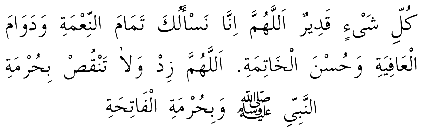 كُلِّ شَىْءٍ قَدِيرٌ اَللَّهُمَّ اِنَّا نَسْأَلُكَ تَمَامَ النِّعْمَةِ وَدَوَامَ
الْعَافِيَةِ وَحُسْنَ الْخَاتِمَةِ. اَللَّهُمَّ زِدْ وَلاَ تَنْقُصْ بِحُرْمَةِ
النَّبِيِّ ﷺ وَبِحُرْمَةِ الْفَاتِحَةِ